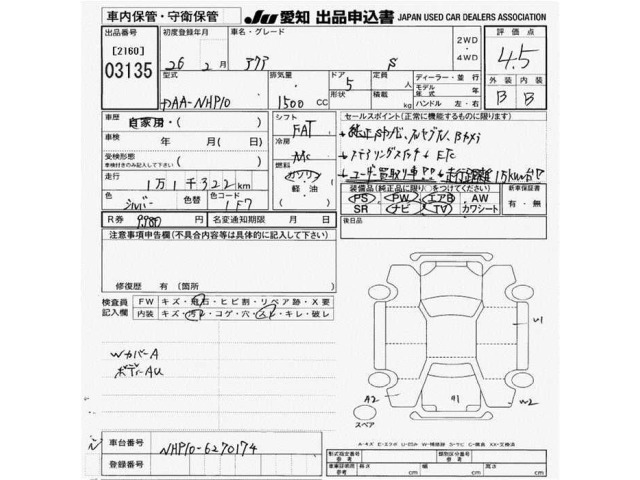 車内保管・守衛保管
JU 愛知 出品申込書 JAPAN USED CAR DEALERS ASSOCIATION
出品番号
[2160]
03135
初度登録年月
26 年 2 月
車名・グレード
アクア S
2WD
・
4WD
評価点
4.5
外装 内装
B B
型式
DAA-NHP10
排気量
1500 CC
ドア
5
形状
定員
人
積載
kg
ディーラー・並行
モデル
年式
年
ハンドル 左・右
車歴
自家用・( )
車検
年 月( 日)
受検形態
車検付きのみ記入して下さい
( )
走行
1万1千322 km
色
シルバー
色替
色コード
1F7
シフト
FAT
冷房
AAC
燃料
ガソリン
軽油
( )
セールスポイント(正常に機能するものに限ります)
純正SDナビ、フルセグTV、Bカメラ
ステアリングスイッチ ETC
ユーザー買取り車 走行距離1万km台
装備品(純正品に限り○をつけてください)
PS PW エアB AW
SR ナビ TV カワシート
新車保証書
有・無
R券 9980 円
名変通知期限 月 日
後日品
注意事項申告欄(不具合内容等は具体的に記入して下さい)
修復歴 有 (箇所 )
検査員
記入欄
FW キズ・飛石・ヒビ割・リペア跡・X要
内装 キズ・汚れ・コゲ・穴・スレ・キレ・破レ
WカバーA
ボディAU
U1
A2
A1
W2
スペア
A-キズ E-エクボ U-凹み W-補修跡 S-サビ C-腐食 XX-交換済
車台番号 NHP10-6270174
登録番号
形式指定番号
類別区分番号
車庫証明用
参考
長さ cm
幅 cm
高さ cm